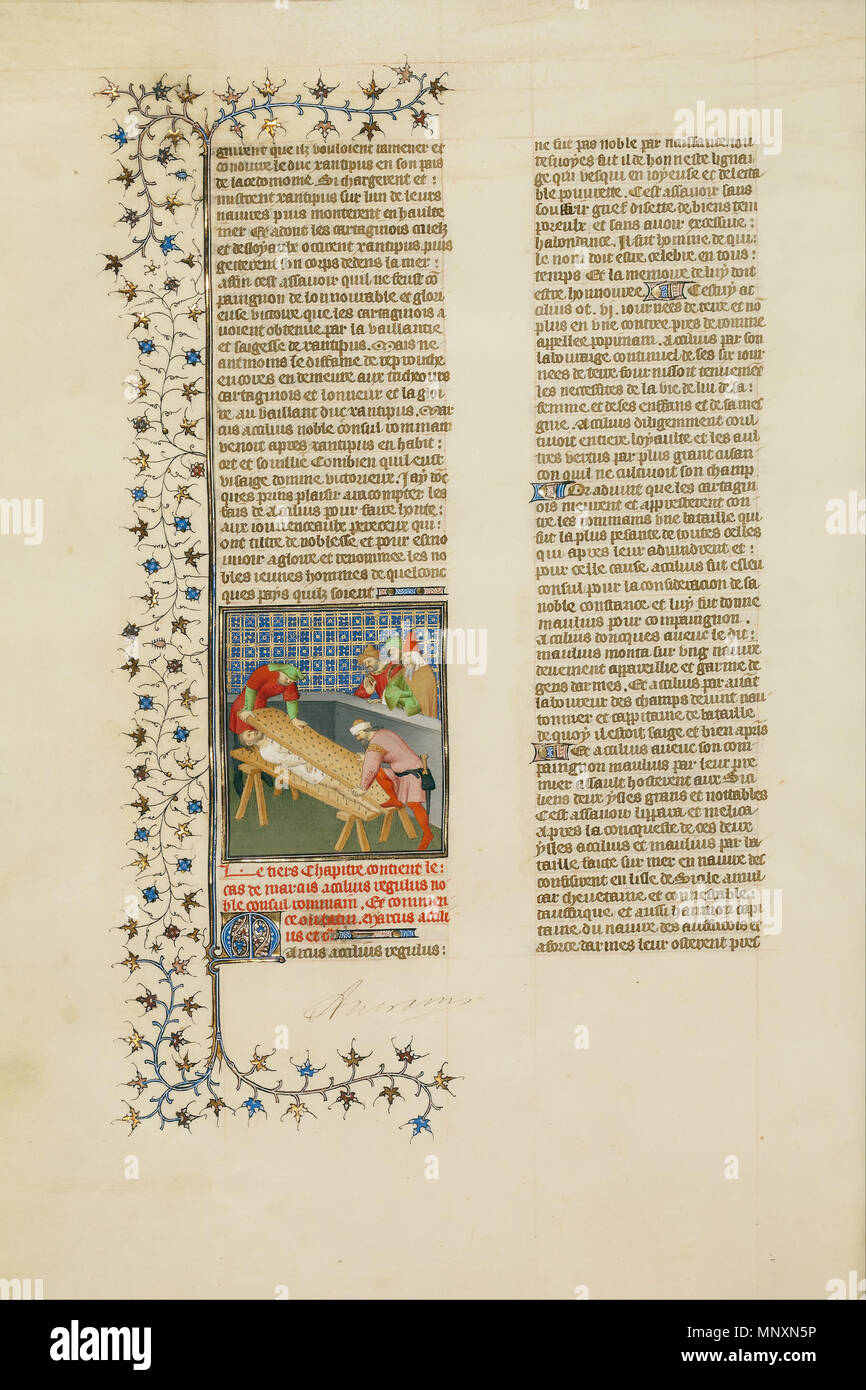 quirent que ilz vouloient ramener et
conduire le duc xantipus en son pais
de lacedomone. Si chargerent et :
mistrent xantipus sur lun de leurs
navires puis monterent en haulte
mer Et adont les cartaginois cruelz
et desloyaulx occirent xantipus puis
getterent son corps dedens la mer :
affin cest assavoir quil ne feust co
paingnon de lonnourable et glori
euse victoire que les cartaginois a
voient obtenue par la vaillance
et saigesse de xantipus. Mais ne
antmoins le diffame de reprouche
encores en demeure aux tricheurs
cartaginois et lonneur et la gloi
re au vaillant duc xantipus. Mar
cus acilius noble consul rommain
venoit apres xantipus en habit :
ort et soullie Combien quil eust
visaige domme victorieux. Jay doc
ques prins plaisir a racompter les
fais de acilius pour faire honte :
aux iouvenceaulx pereceux qui :
ont tiltre de noblesse et pour esmo
uvoir a gloire et renommee les no
bles ieunes hommes de quelconc
ques pays quilz soient
Le tiers Chapitre contient le :
cas de marcus acilius regulus no
ble consul rommain. Et commen
ce ou latin. Marcus acili
us et c
Marcus acilius regulus :
ne fut pas noble par naissance tou
tesvoyes fut il de honneste lignai
ge qui vesqui en ioyeuse et delecta
ble pouvrette. Cest assavoir sans
souffrir grief disette de biens tem
porelz et sans avoir excessive :
habondance. Il fut homme de qui :
le nom doit estre celebre en tous :
temps Et la memoire de luy doit
estre honnouree Cestuy ac
cilius ot .vi. iournees de terre et no
plus en une contree pres de romme
appellee popinam. Acilius par son
labouraige continuel de ses six iour
nees de terre fournissoit tenuement
les necessites de la vie de lui de sa :
femme et de ses enffans et de sa mes
gnie. Acilius diligemment coul
tivoit entiere loyaulte et les aul
tres vertus par plus grant cusan
con quil ne cultivoit son champ
Or advint que les cartagin
ois meurent et appresterent con
tre les rommains une bataille qui
fut la plus pesante de toutes celles
qui apres leur advindrent et :
pour celle cause acilius fut esleu
consul pour la consideracion de sa
noble constance et luy fut donne
maulius pour compaignon.
Acilius doncques avecc le dit :
maulius monta sur ung navire
deuement appareille et garnie de
gens darmes. Et acilius par avat
laboureur des champs devint nau
tonnier et cappitaine de bataille
de quoy il estoit saige et bien apris
Et acilius avecc son com
paingnon maulius par leur pre
mier assault hosterent aux Sici
liens deux ysles grans et nottables
Cest assavoir lippara et melica
Apres la conqueste de ces deux
ysles acilius et maulius par ba
taille faicte sur mer en navire des
confirent en lisle de Sicile amil
car chevetaine et connestable
dauffrique et aussi hannon capi
taine du navire des auffricois et
a force darmes leur osterent pres
alamy
Image ID: MNXN5P
www.alamy.com